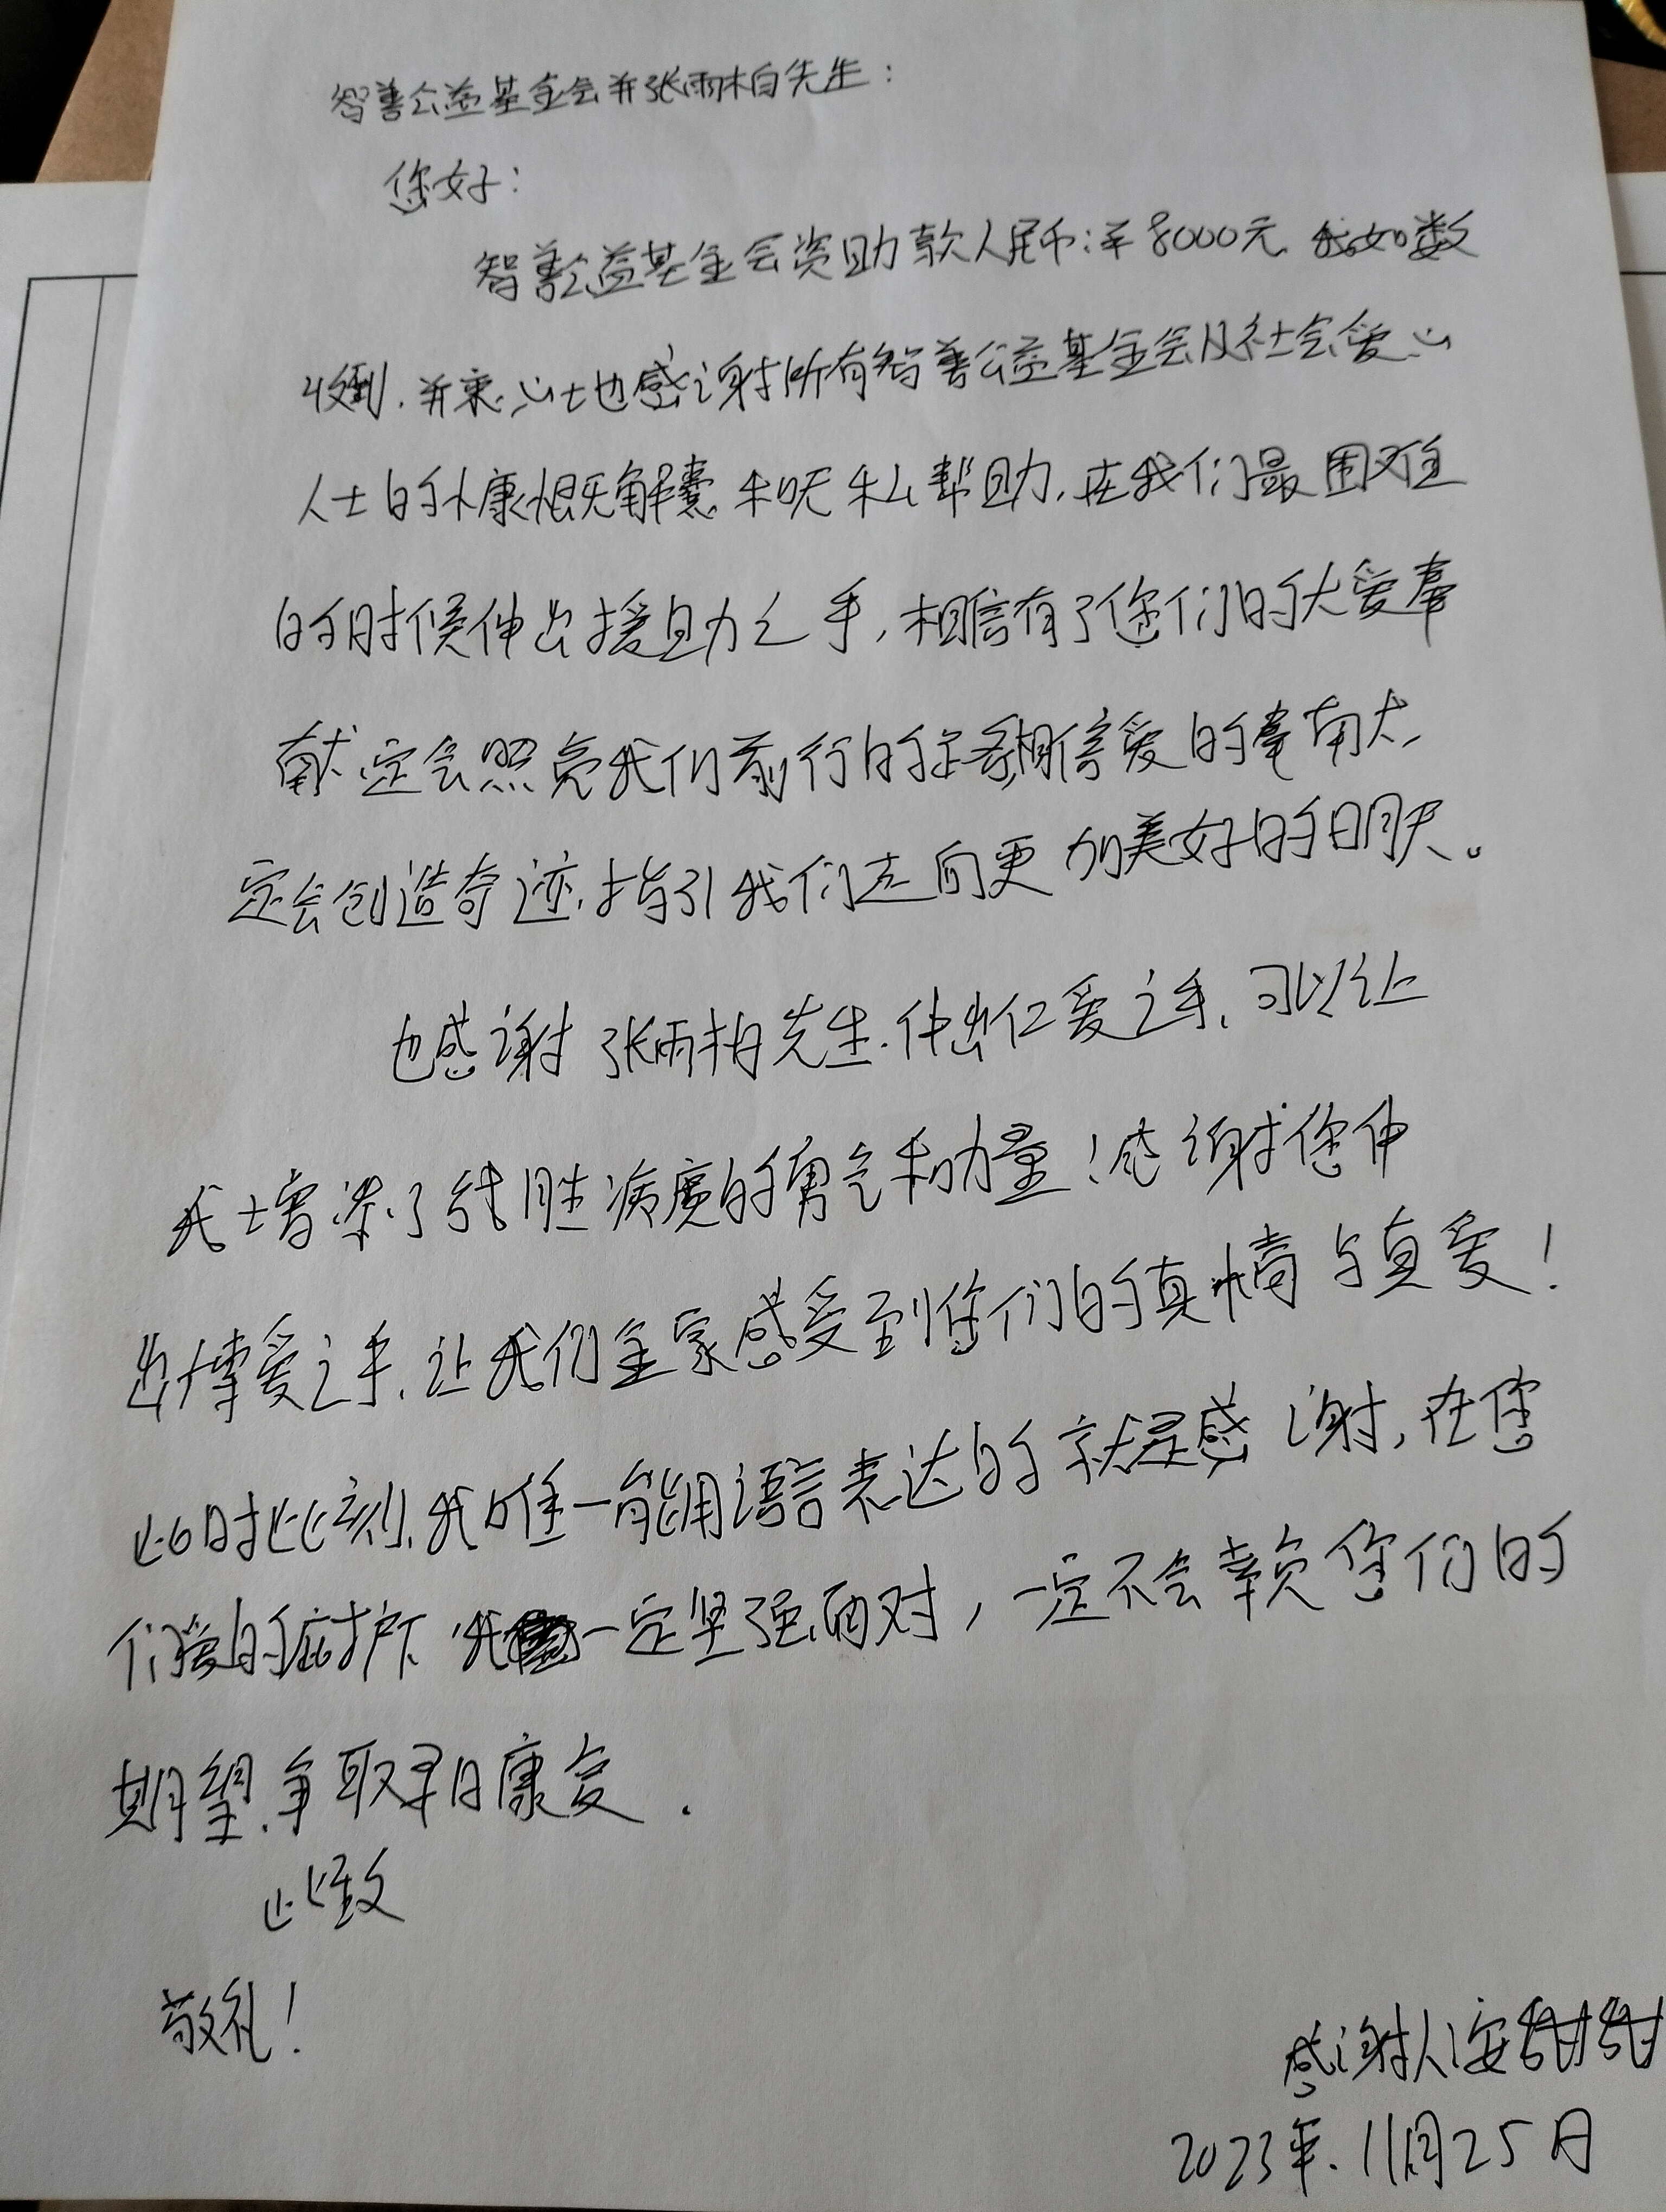 智善公益基金会并张雨柏先生：
您好：
智善公益基金会资助款人民币:￥8000元.我如数
收到.并衷心地感谢所有智善公益基金会及社会爱心
人士的慷慨解囊和无私帮助,在我们最困难
的时候伸出援助之手,相信有了您们的大爱奉
献定会照亮我们前行的路相信爱的奉献大,
定会创造奇迹,指引我们走向更加美好的明天。
也感谢张雨柏先生.伸出仁爱之手,可以让
我增添了战胜病魔的勇气和力量!感谢您伸
出博爱之手,让我们全家感受到您们的真情与真爱!
此时此刻,我唯一能用语言表达的就是感谢,在您
们爱的庇护下我一定坚强面对,一定不会辜负您们的
期望,争取早日康复.
此致
敬礼!
感谢人:安甜甜
2023年.11月25日